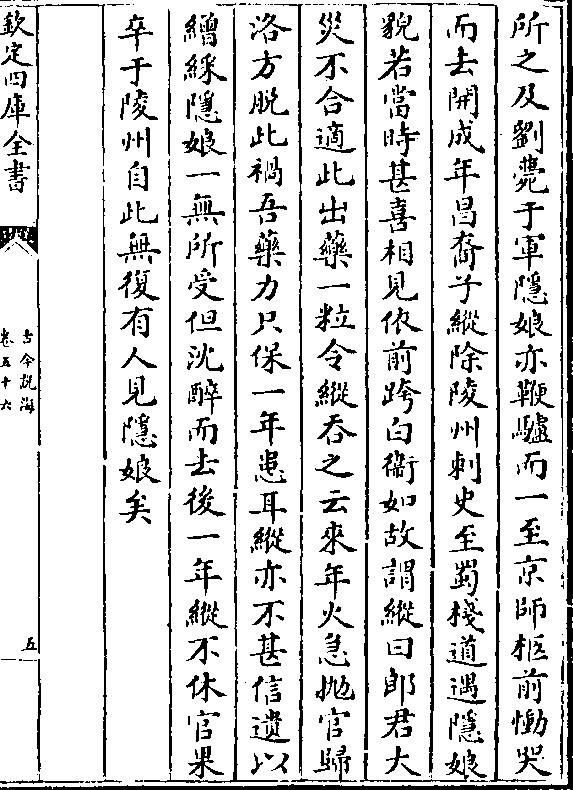 所之及劉薨于軍隱娘亦鞭驢而一至京師柩前慟哭
而去開成年昌裔子縱除陵州刺史至蜀棧道遇隱娘
貌若當時甚喜相見依前跨白衛如故謂縱曰郎君大
災不合適此出藥一粒令縱吞之云來年火急抛官歸
洛方脫此禍吾藥力只保一年患耳縱亦不甚信遺以
繒綵隱娘一無所受但沈醉而去後一年縱不休官果
卒于陵州自此無復有人見隱娘矣
欽定四庫全書
古今説海
卷五十六
五